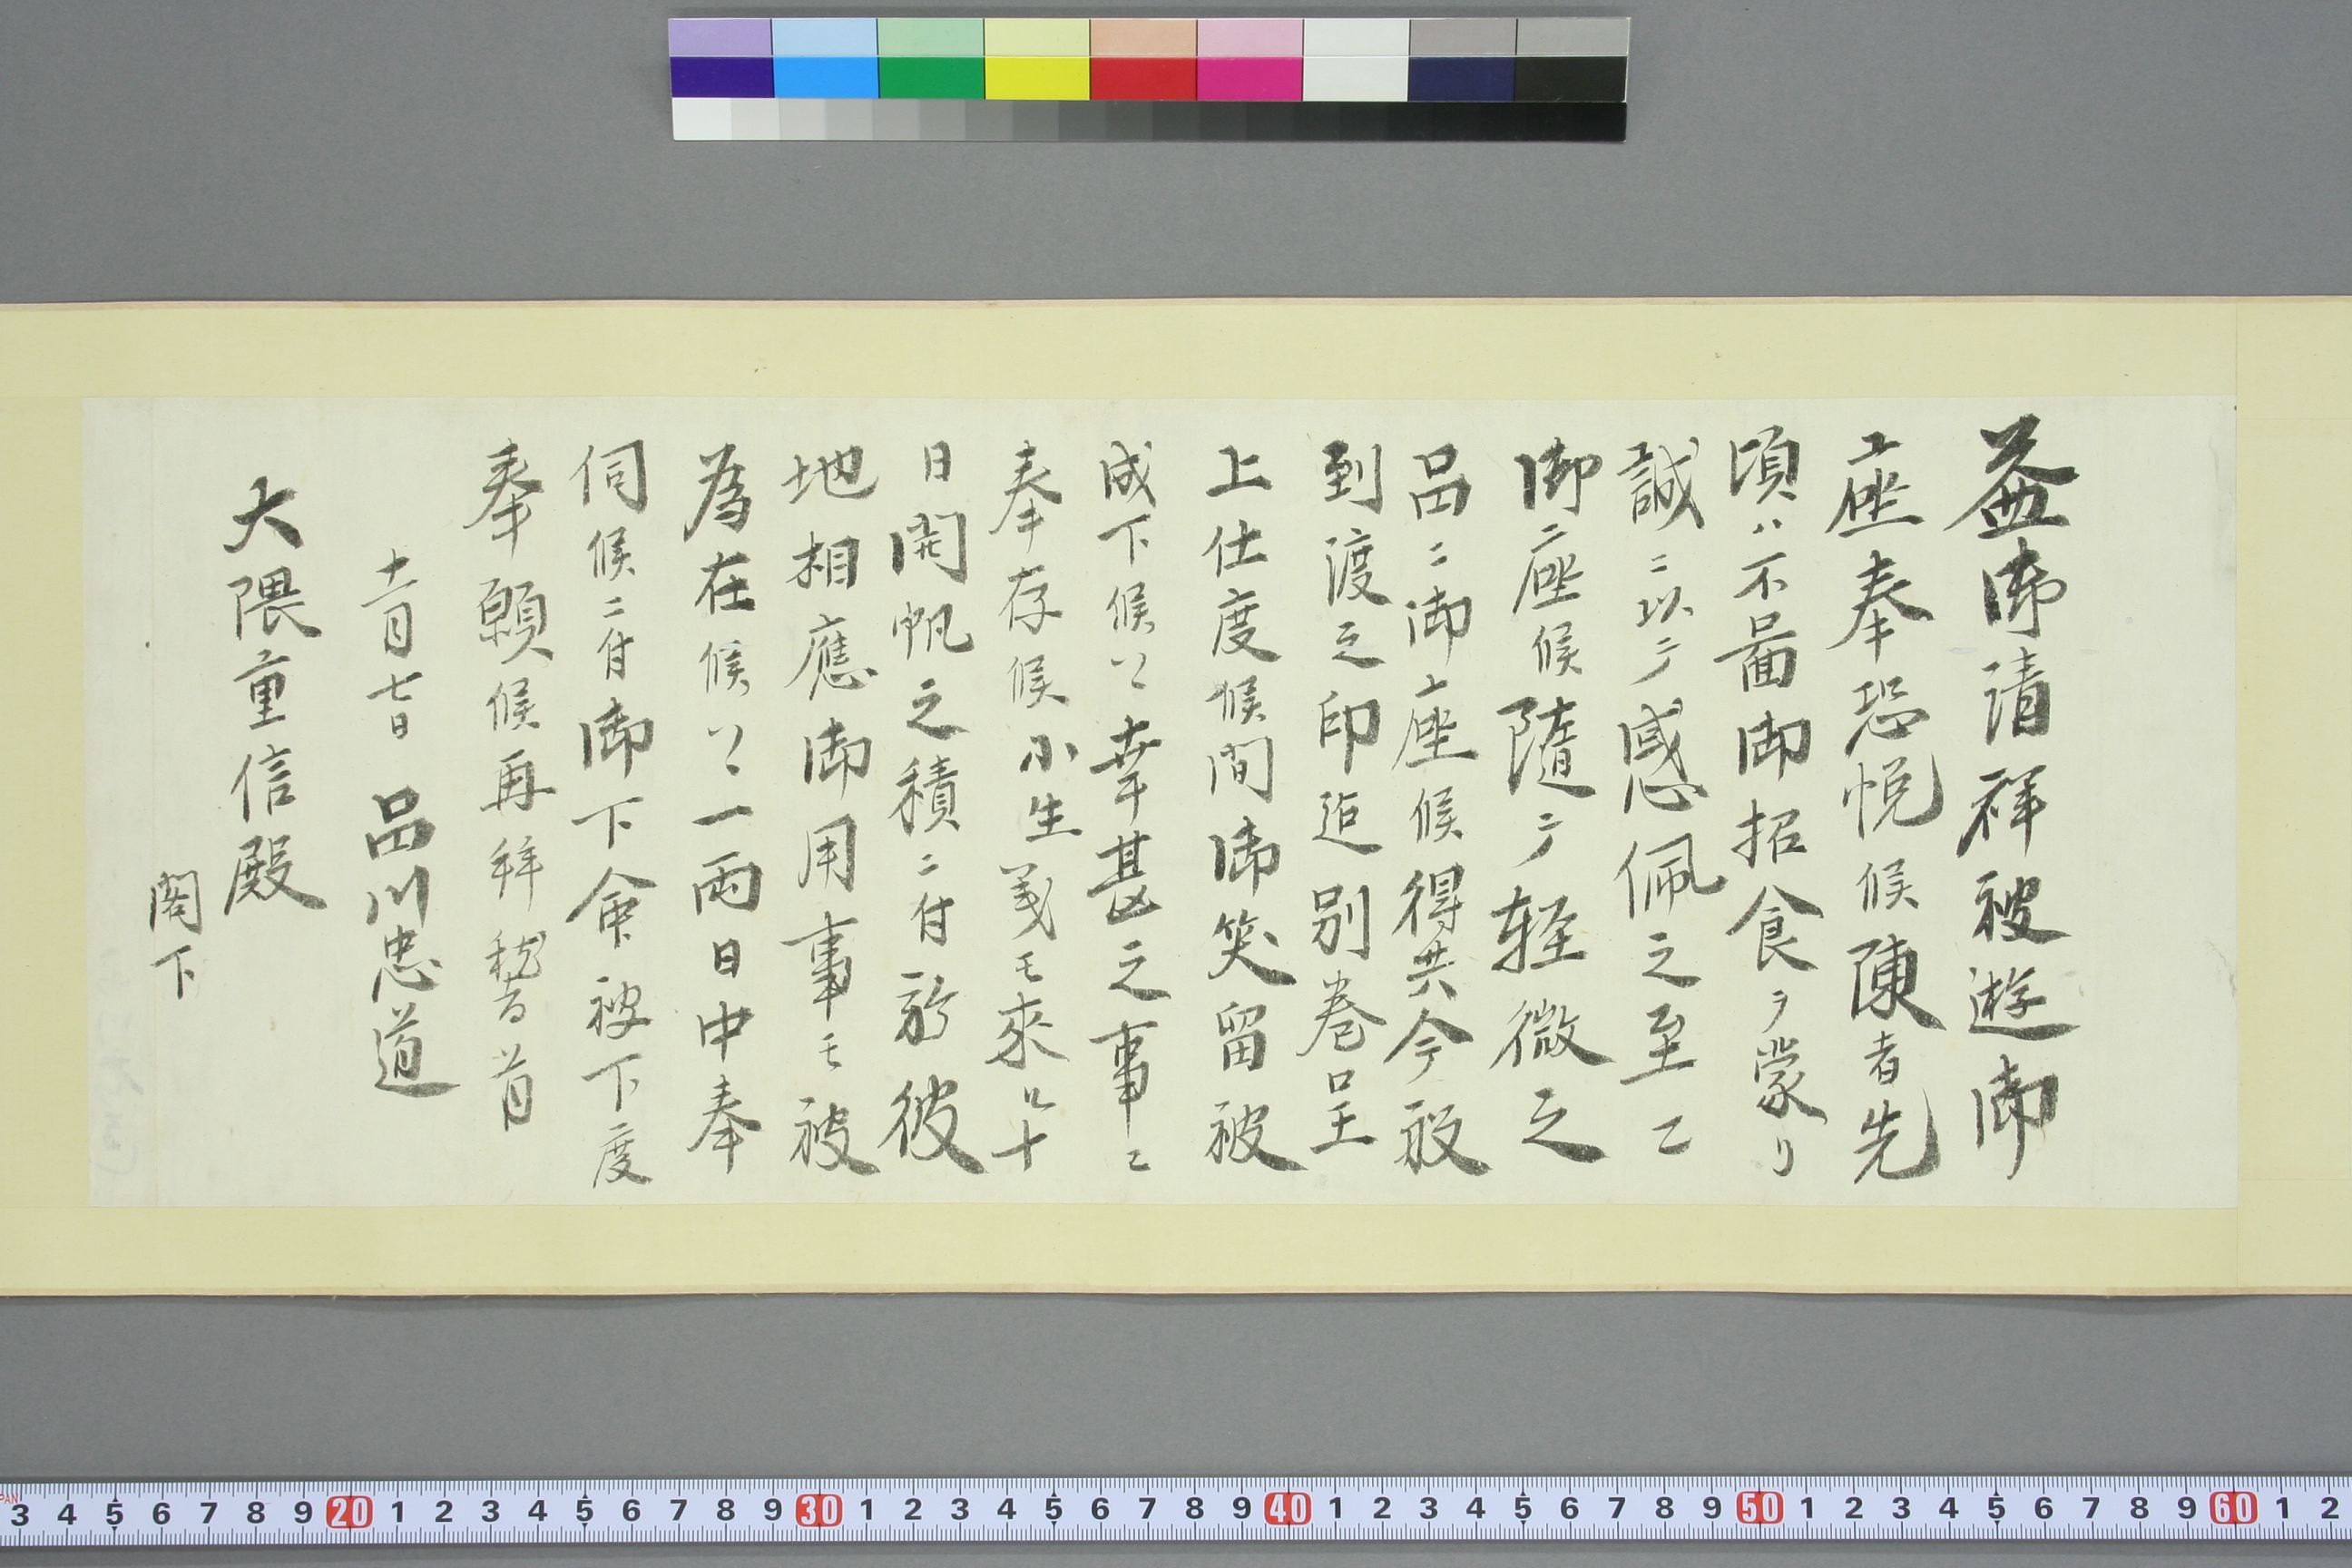 益御清祥被遊御
座奉恐悦候陳者先
頃ハ不啚御招食ヲ蒙リ
誠ニ以テ感佩之至ニ
御座候随テ軽微之
品ニ御座候得共今般
到渡之印迄別巻呈
上仕度候間御笑留被
成下候ハヽ幸甚之事ニ
奉存候小生義モ来ル十
日開帆之積ニ付於彼
地相應御用事モ被
為在候ハヽ一両日中奉
伺候ニ付御下命被下度
奉願候再拝稽首
十一月七日 品川忠道
大隈重信殿
閣下
JAPAN
3 4 5 6 7 8 9 20 1 2 3 4 5 6 7 8 9 30 1 2 3 4 5 6 7 8 9 40 1 2 3 4 5 6 7 8 9 50 1 2 3 4 5 6 7 8 9 60 1 2